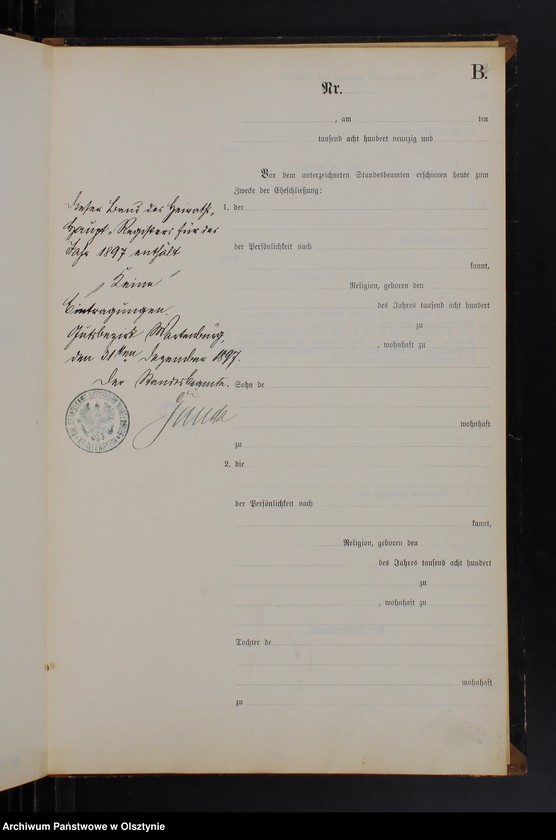 B.
Nr.
, am ten
tausend acht hundert neunzig und
Vor dem unterzeichneten Standesbeamten erschienen heute zum
Zwecke der Eheschließung:
1. der
der Persönlichkeit nach
kannt,
Religion, geboren den
des Jahres tausend acht hundert
zu
, wohnhaft zu
Sohn de
wohnhaft
zu
2. die
der Persönlichkeit nach
kannt,
Religion, geboren den
des Jahres tausend acht hundert
zu
, wohnhaft zu
Tochter de
wohnhaft
zu
Dieser Band des Heiraths-
Haupt-Registers für das
Jahr 1897 enthält
"Keine"
Eintragungen.
Gutsbezirk
den 31ten Dezember 1897.
Der Standesbeamte.
Archiwum Państwowe w Olsztynie